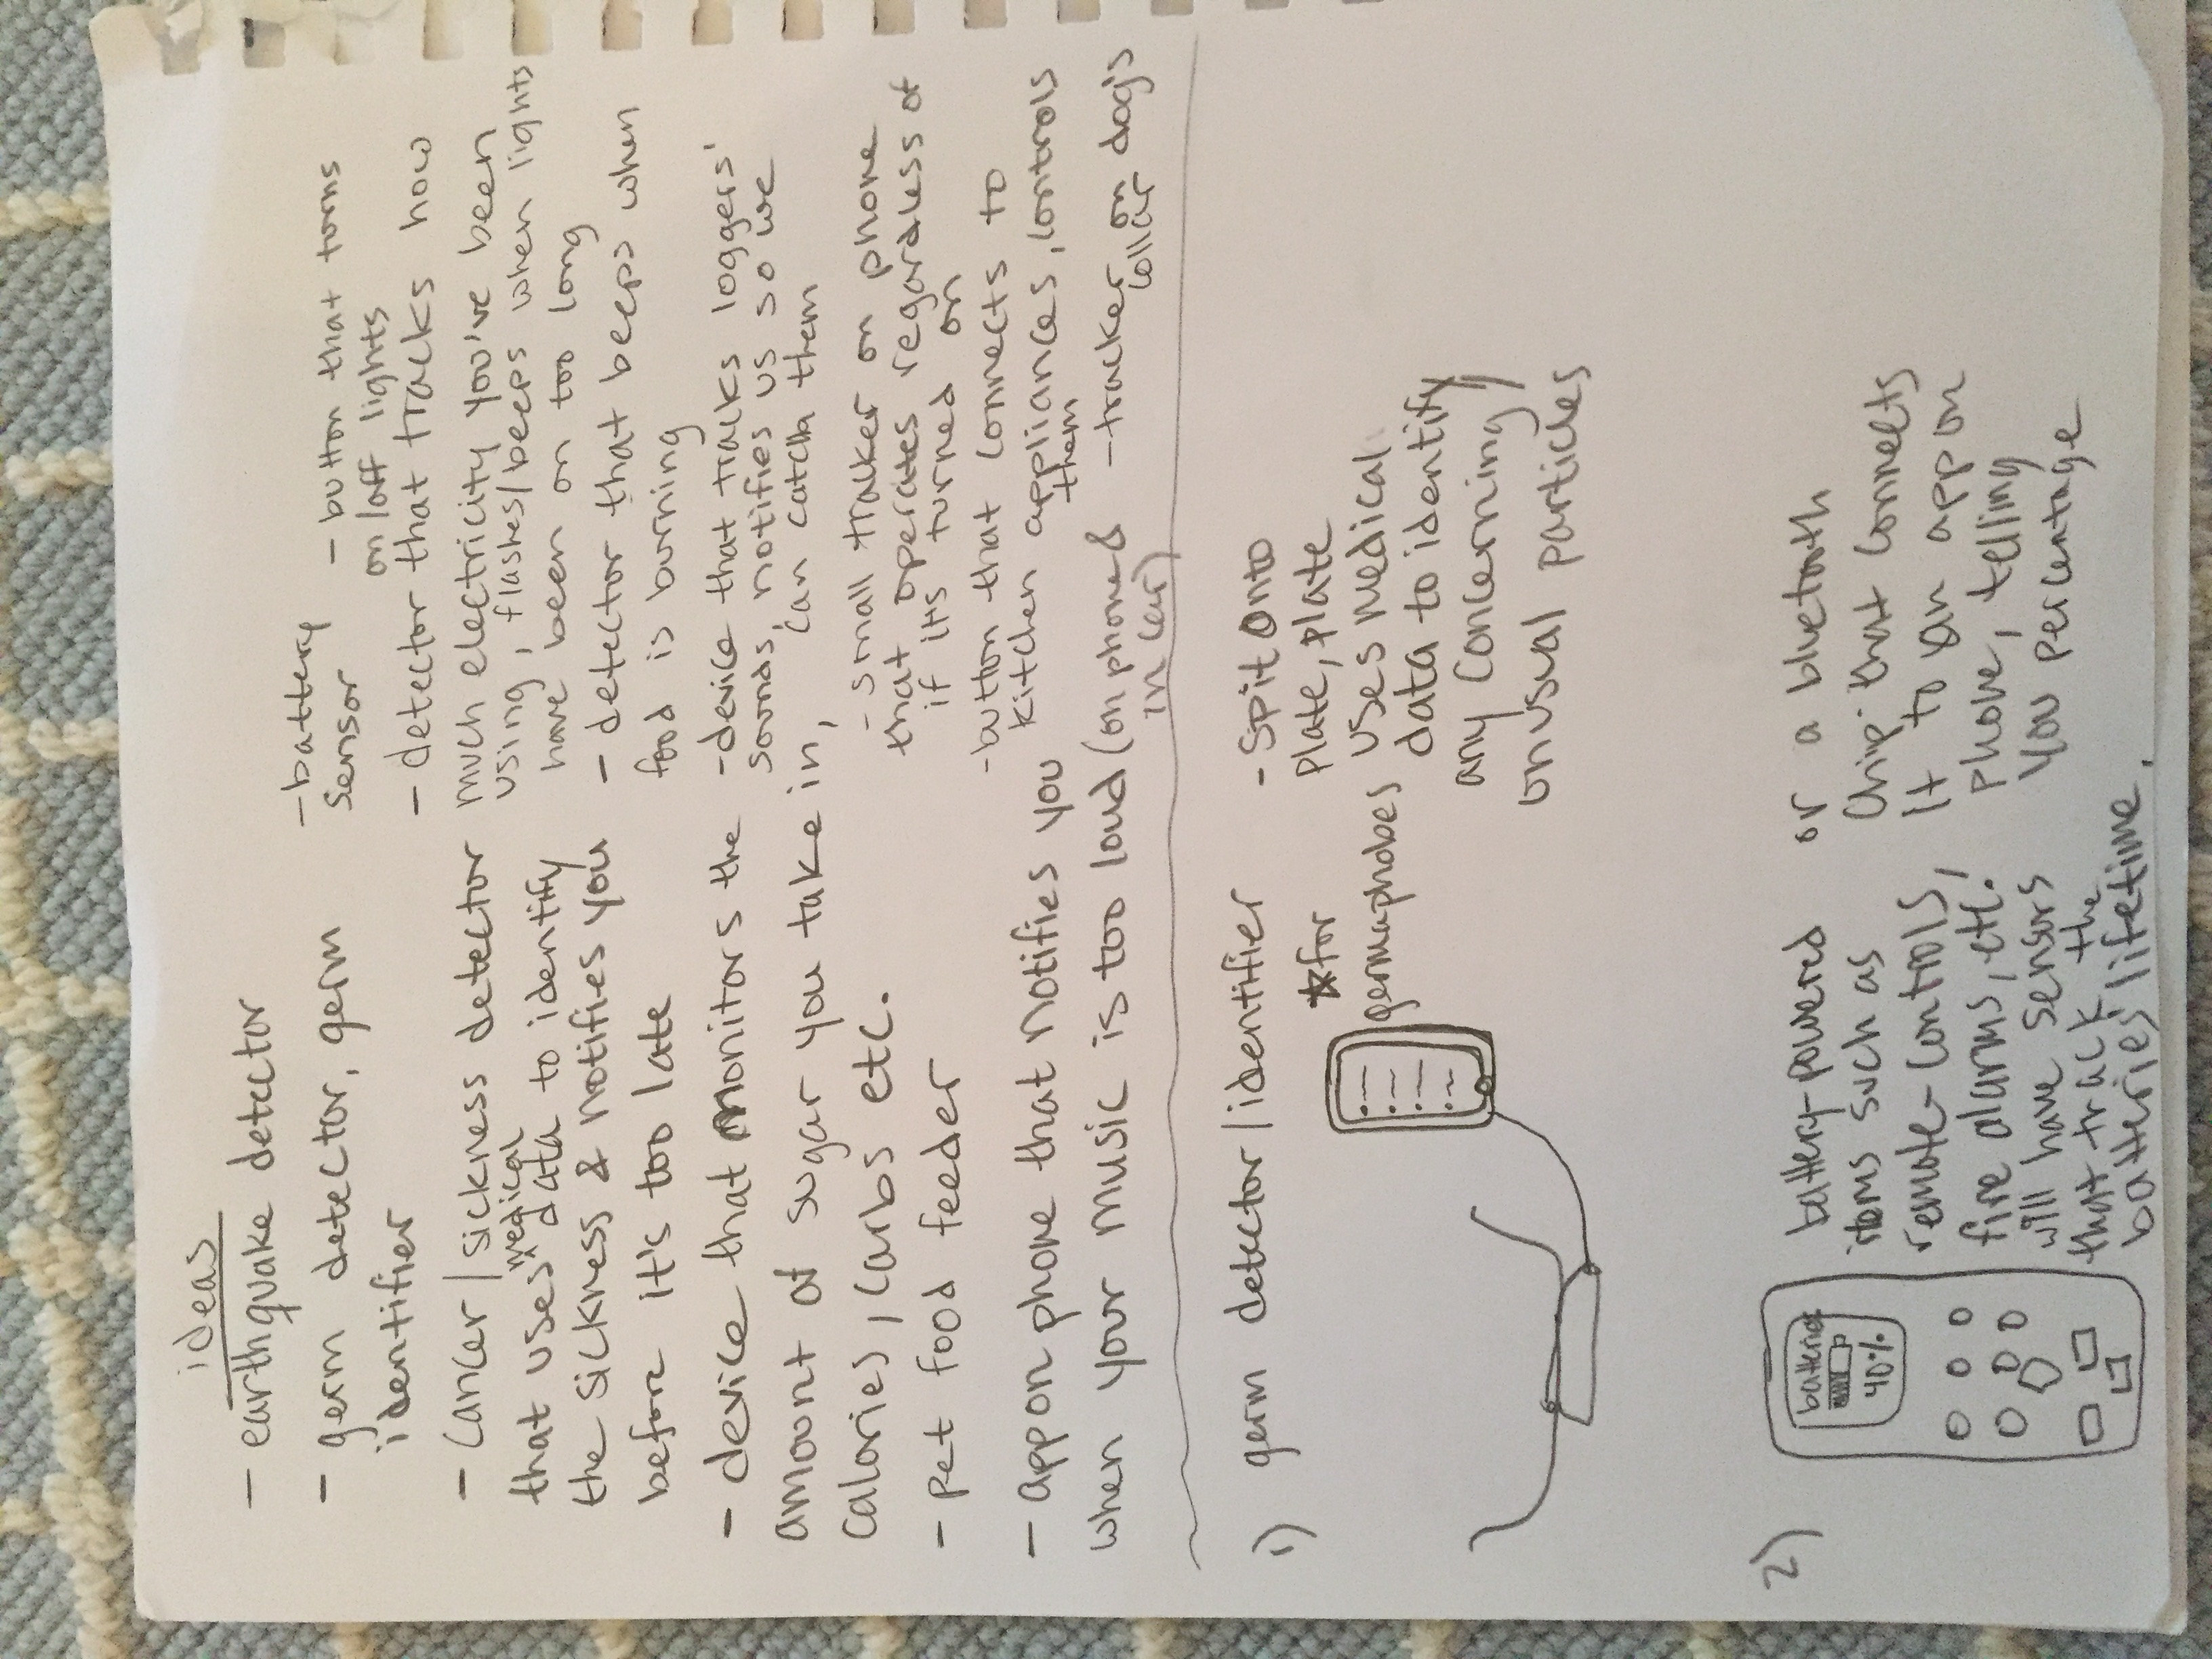 ideas
- earthquake detector
- germ detector, germ
identifier
- cancer/sickness detector
that uses ^medical data to identify
the sickness & notifies you
before it's too late
- device that monitors the
amount of sugar you take in,
calories, carbs etc.
- pet food feeder
- app on phone that notifies you
when your music is too loud (on phone &
in car)
- battery
sensor
- button that turns
on/off lights
- detector that tracks how
much electricity you've been
using, flashes/beeps when lights
have been on too long
- detector that beeps when
food is burning
- device that tracks loggers'
sounds, notifies us so we
can catch them
- small tracker on phone
that operates regardless of
if it's turned on
- button that connects to
kitchen appliances, controls
them
- tracker on dog's
collar
1) germ detector/identifier
☆for
germaphobes
- spit onto
plate, plate
uses medical
data to identify
any concerning/
unusual particles
2)
batteries
40%
battery-powered
items such as
remote-controls,
fire alarms, etc.
will have sensors
that track the
batteries' lifetime.
or a bluetooth
chip that connects
it to an app on
phone, telling
you percentage